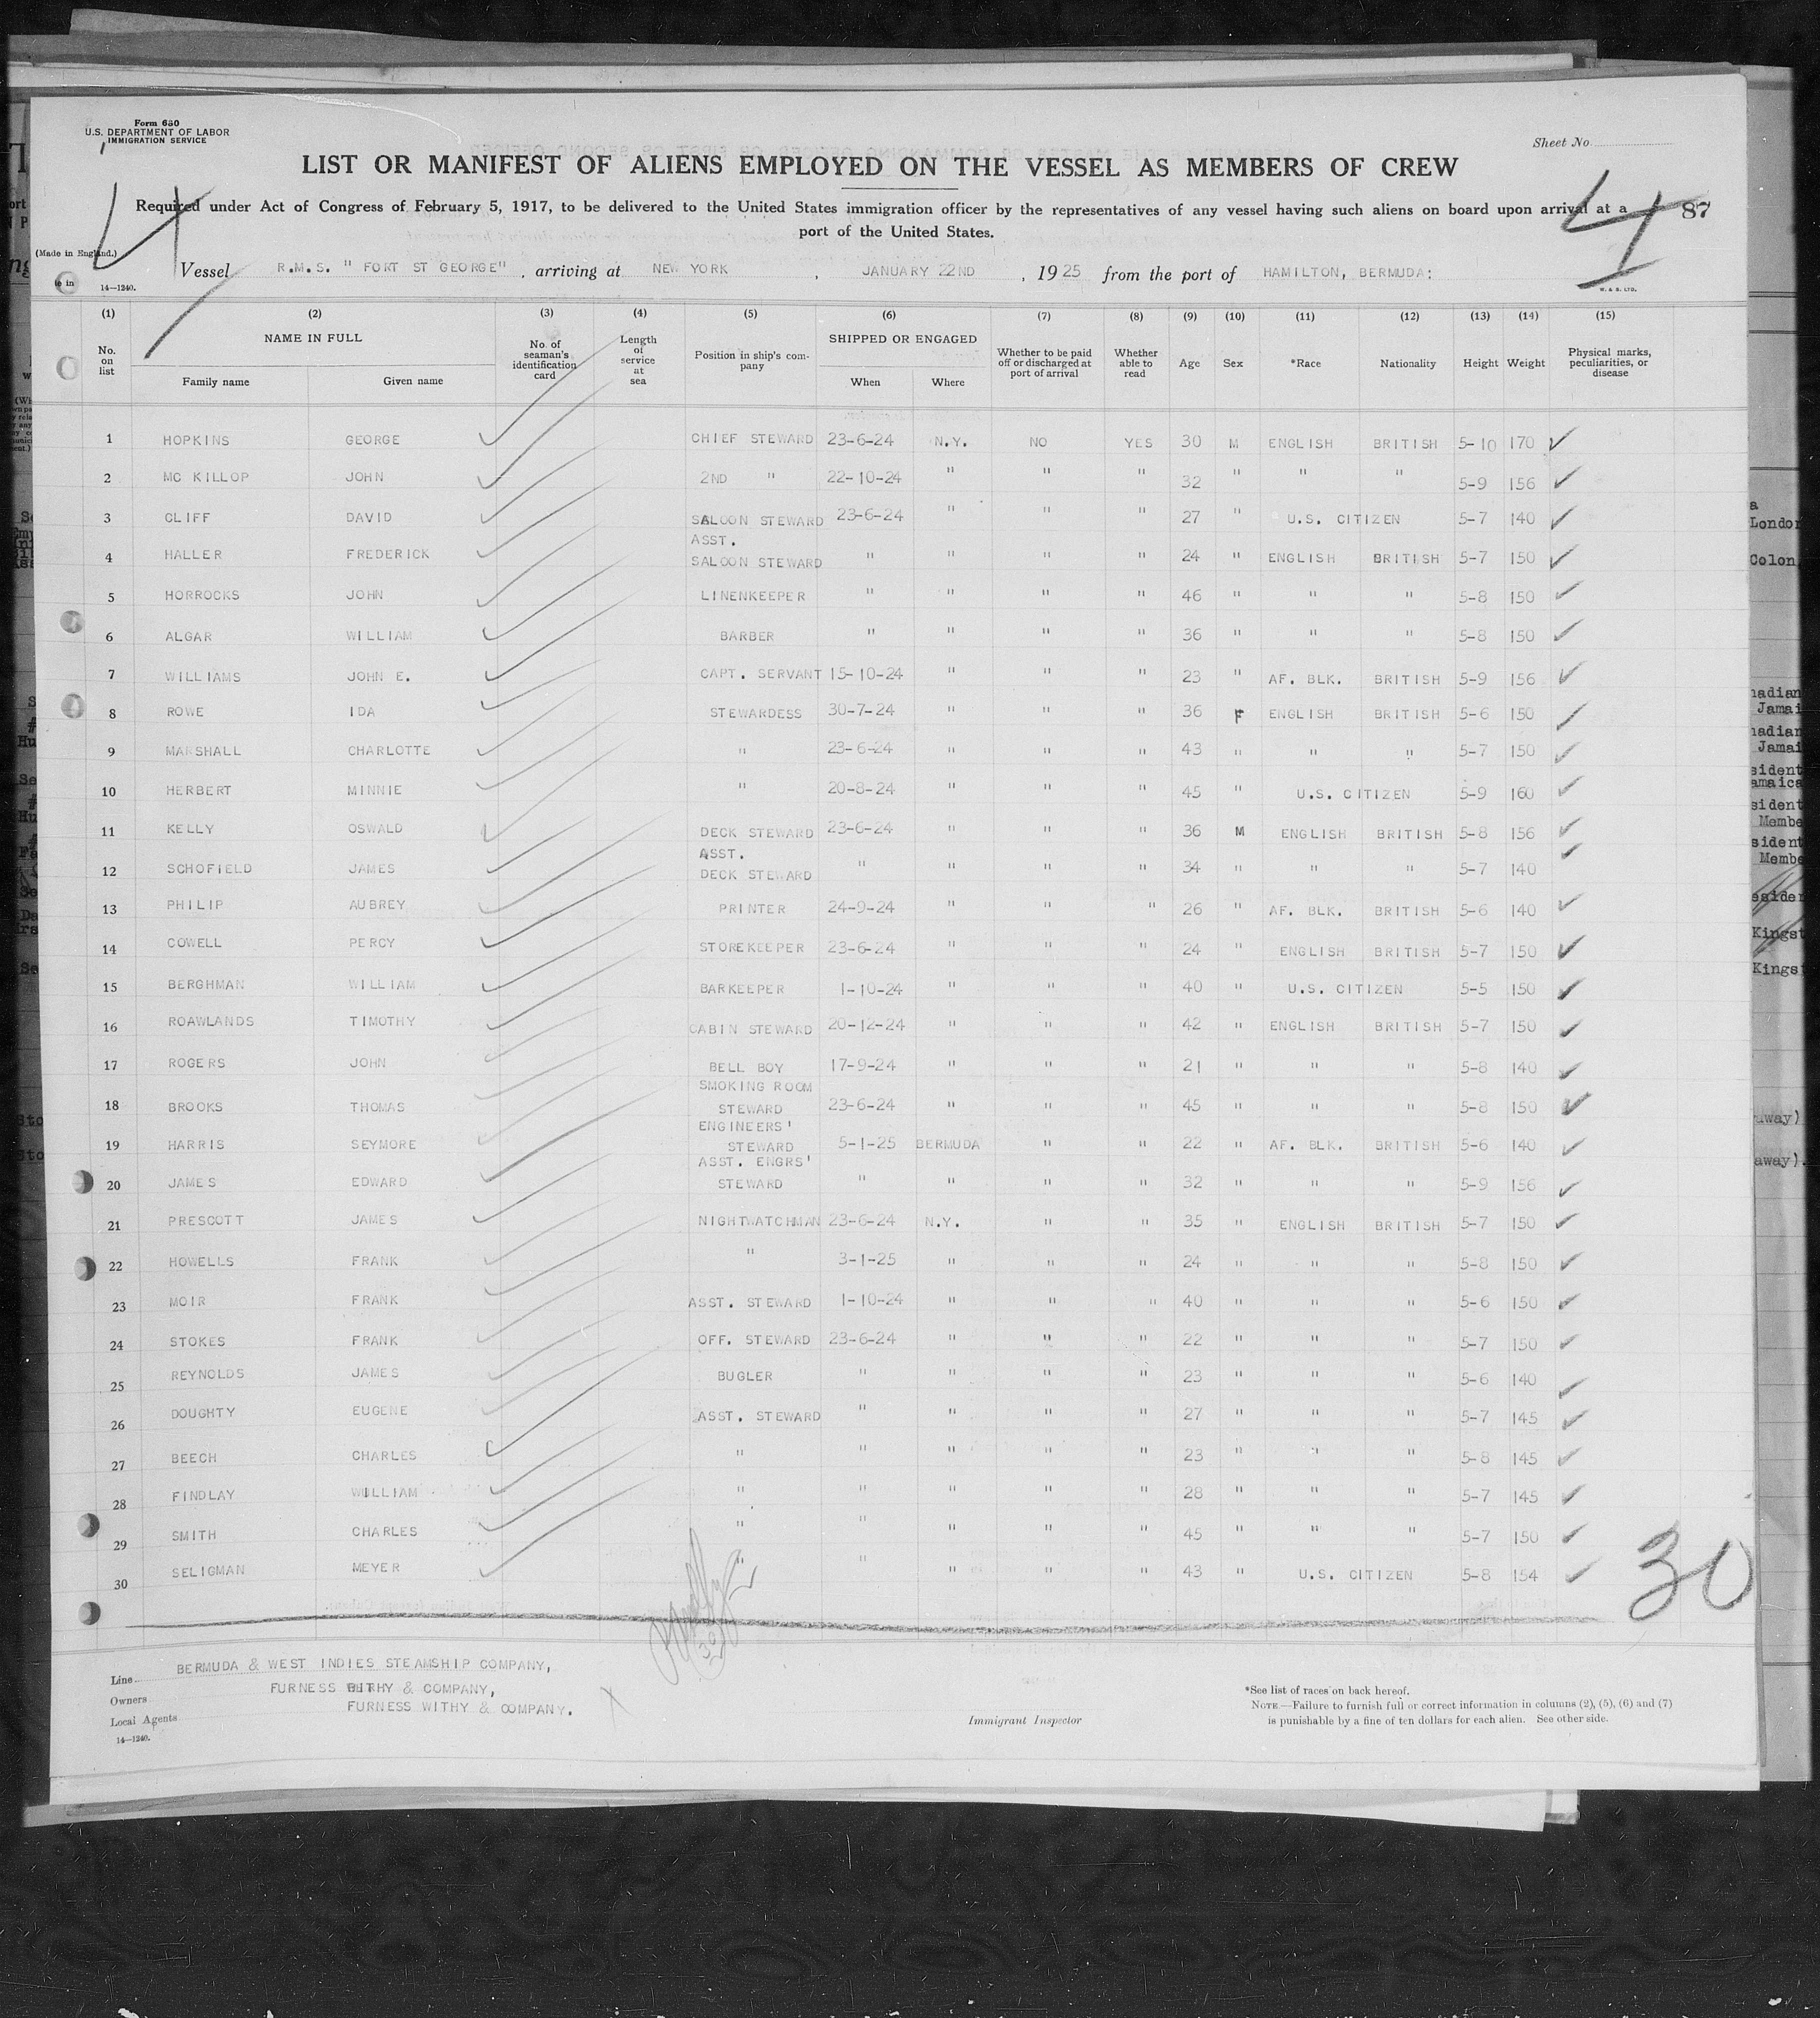 Form 680
U.S. DEPARTMENT OF LABOR
IMMIGRATION SERVICE
Sheet No.
LIST OR MANIFEST OF ALIENS EMPLOYED ON THE VESSEL AS MEMBERS OF CREW
Required under Act of Congress of February 5, 1917, to be delivered to the United States immigration officer by the representatives of any vessel having such aliens on board upon arrival at a
port of the United States.
87
4
4
(Made in England.)
Vessel R.M.S. " FORT ST GEORGE" , arriving at NEW YORK , JANUARY 22ND , 1925 from the port of HAMILTON, BERMUDA:
14—1240.
W. & S. LTD.
(1) (2) (3) (4) (5) (6) (7) (8) (9) (10) (11) (12) (13) (14) (15)
No. on list NAME IN FULL Family name Given name No. of seaman's identification card Length of service at sea Position in ship's company SHIPPED OR ENGAGED When Where Whether to be paid off or discharged at port of arrival Whether able to read Age Sex *Race Nationality Height Weight Physical marks, peculiarities, or disease
1 HOPKINS GEORGE CHIEF STEWARD 23-6-24 N.Y. NO YES 30 M ENGLISH BRITISH 5-10 170
2 MC KILLOP JOHN 2ND " 22-10-24 " " " 32 " " " 5-9 156
3 CLIFF DAVID SALOON STEWARD 23-6-24 " " " 27 " U.S. CITIZEN 5-7 140
4 HALLER FREDERICK ASST. SALOON STEWARD " " " " 24 " ENGLISH BRITISH 5-7 150
5 HORROCKS JOHN LINENKEEPER " " " " 46 " " " 5-8 150
6 ALGAR WILLIAM BARBER " " " " 36 " " " 5-8 150
7 WILLIAMS JOHN E. CAPT. SERVANT 15-10-24 " " " 23 " AF. BLK. BRITISH 5-9 156
8 ROWE IDA STEWARDESS 30-7-24 " " " 36 F ENGLISH BRITISH 5-6 150
9 MARSHALL CHARLOTTE " 23-6-24 " " " 43 " " " 5-7 150
10 HERBERT MINNIE " 20-8-24 " " " 45 " U.S. CITIZEN 5-9 160
11 KELLY OSWALD DECK STEWARD 23-6-24 " " " 36 M ENGLISH BRITISH 5-8 156
12 SCHOFIELD JAMES ASST. DECK STEWARD " " " " 34 " " " 5-7 140
13 PHILIP AUBREY PRINTER 24-9-24 " " " 26 " AF. BLK. BRITISH 5-6 140
14 COWELL PERCY STOREKEEPER 23-6-24 " " " 24 " ENGLISH BRITISH 5-7 150
15 BERGHMAN WILLIAM BARKEEPER 1-10-24 " " " 40 " U.S. CITIZEN 5-5 150
16 ROAWLANDS TIMOTHY CABIN STEWARD 20-12-24 " " " 42 " ENGLISH BRITISH 5-7 150
17 ROGERS JOHN BELL BOY 17-9-24 " " " 21 " " " 5-8 140
18 BROOKS THOMAS SMOKING ROOM STEWARD 23-6-24 " " " 45 " " " 5-8 150
19 HARRIS SEYMORE ENGINEERS' STEWARD 5-1-25 BERMUDA " " 22 " AF. BLK. BRITISH 5-6 140
20 JAMES EDWARD ASST. ENGRS' STEWARD " " " " 32 " " " 5-9 156
21 PRESCOTT JAMES NIGHTWATCHMAN 23-6-24 N.Y. " " 35 " ENGLISH BRITISH 5-7 150
22 HOWELLS FRANK " 3-1-25 " " " 24 " " " 5-8 150
23 MOIR FRANK ASST. STEWARD 1-10-24 " " " 40 " " " 5-6 150
24 STOKES FRANK OFF. STEWARD 23-6-24 " " " 22 " " " 5-7 150
25 REYNOLDS JAMES BUGLER " " " " 23 " " " 5-6 140
26 DOUGHTY EUGENE ASST. STEWARD " " " " 27 " " " 5-7 145
27 BEECH CHARLES " " " " " 23 " " " 5-8 145
28 FINDLAY WILLIAM " " " " " 28 " " " 5-7 145
29 SMITH CHARLES " " " " " 45 " " " 5-7 150
30 SELIGMAN MEYER " " " " " 43 " U.S. CITIZEN 5-8 154
30
Line BERMUDA & WEST INDIES STEAMSHIP COMPANY,
Owners FURNESS WITHY & COMPANY,
Local Agents FURNESS WITHY & COMPANY.
14—1240.
Immigrant Inspector
*See list of races on back hereof.
NOTE.—Failure to furnish full or correct information in columns (2), (5), (6) and (7)
is punishable by a fine of ten dollars for each alien. See other side.